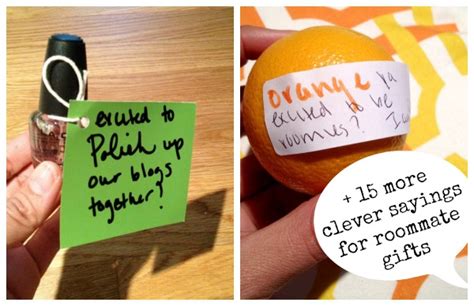 excited to
Polish up
our blogs
together?
orange ya
excited to be
roomies? I
+ 15 more
clever sayings
for roommate
gifts